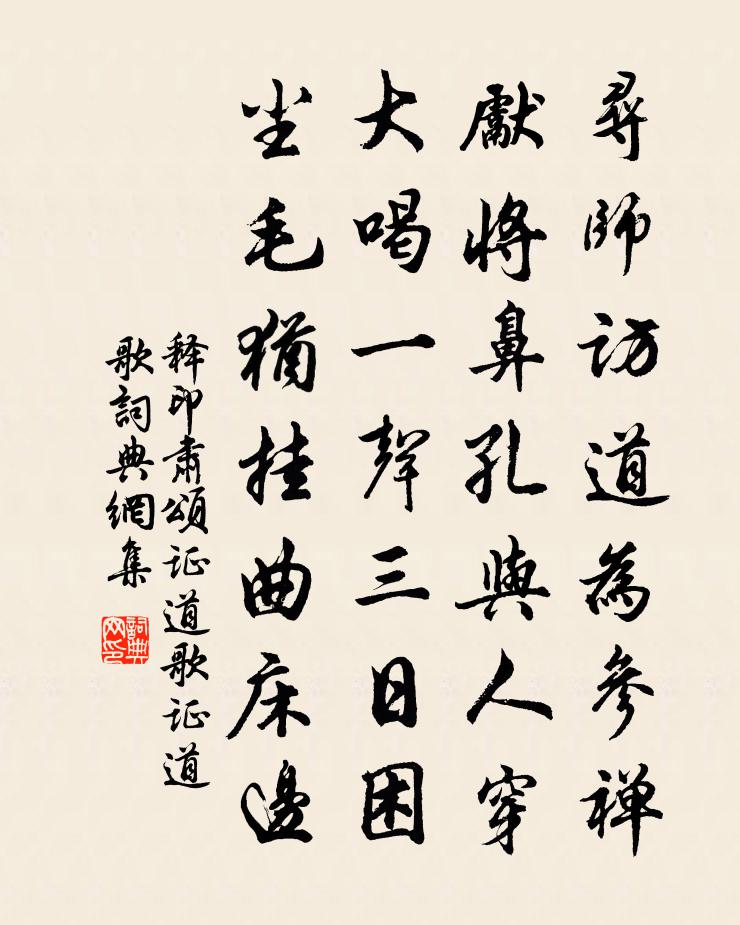 尋師訪道為參禪
獻將鼻孔與人穿
大喝一聲三日困
尘毛猶挂曲床邊
释印肅頌证道歌证道
歌詞典網集
詞典
网印